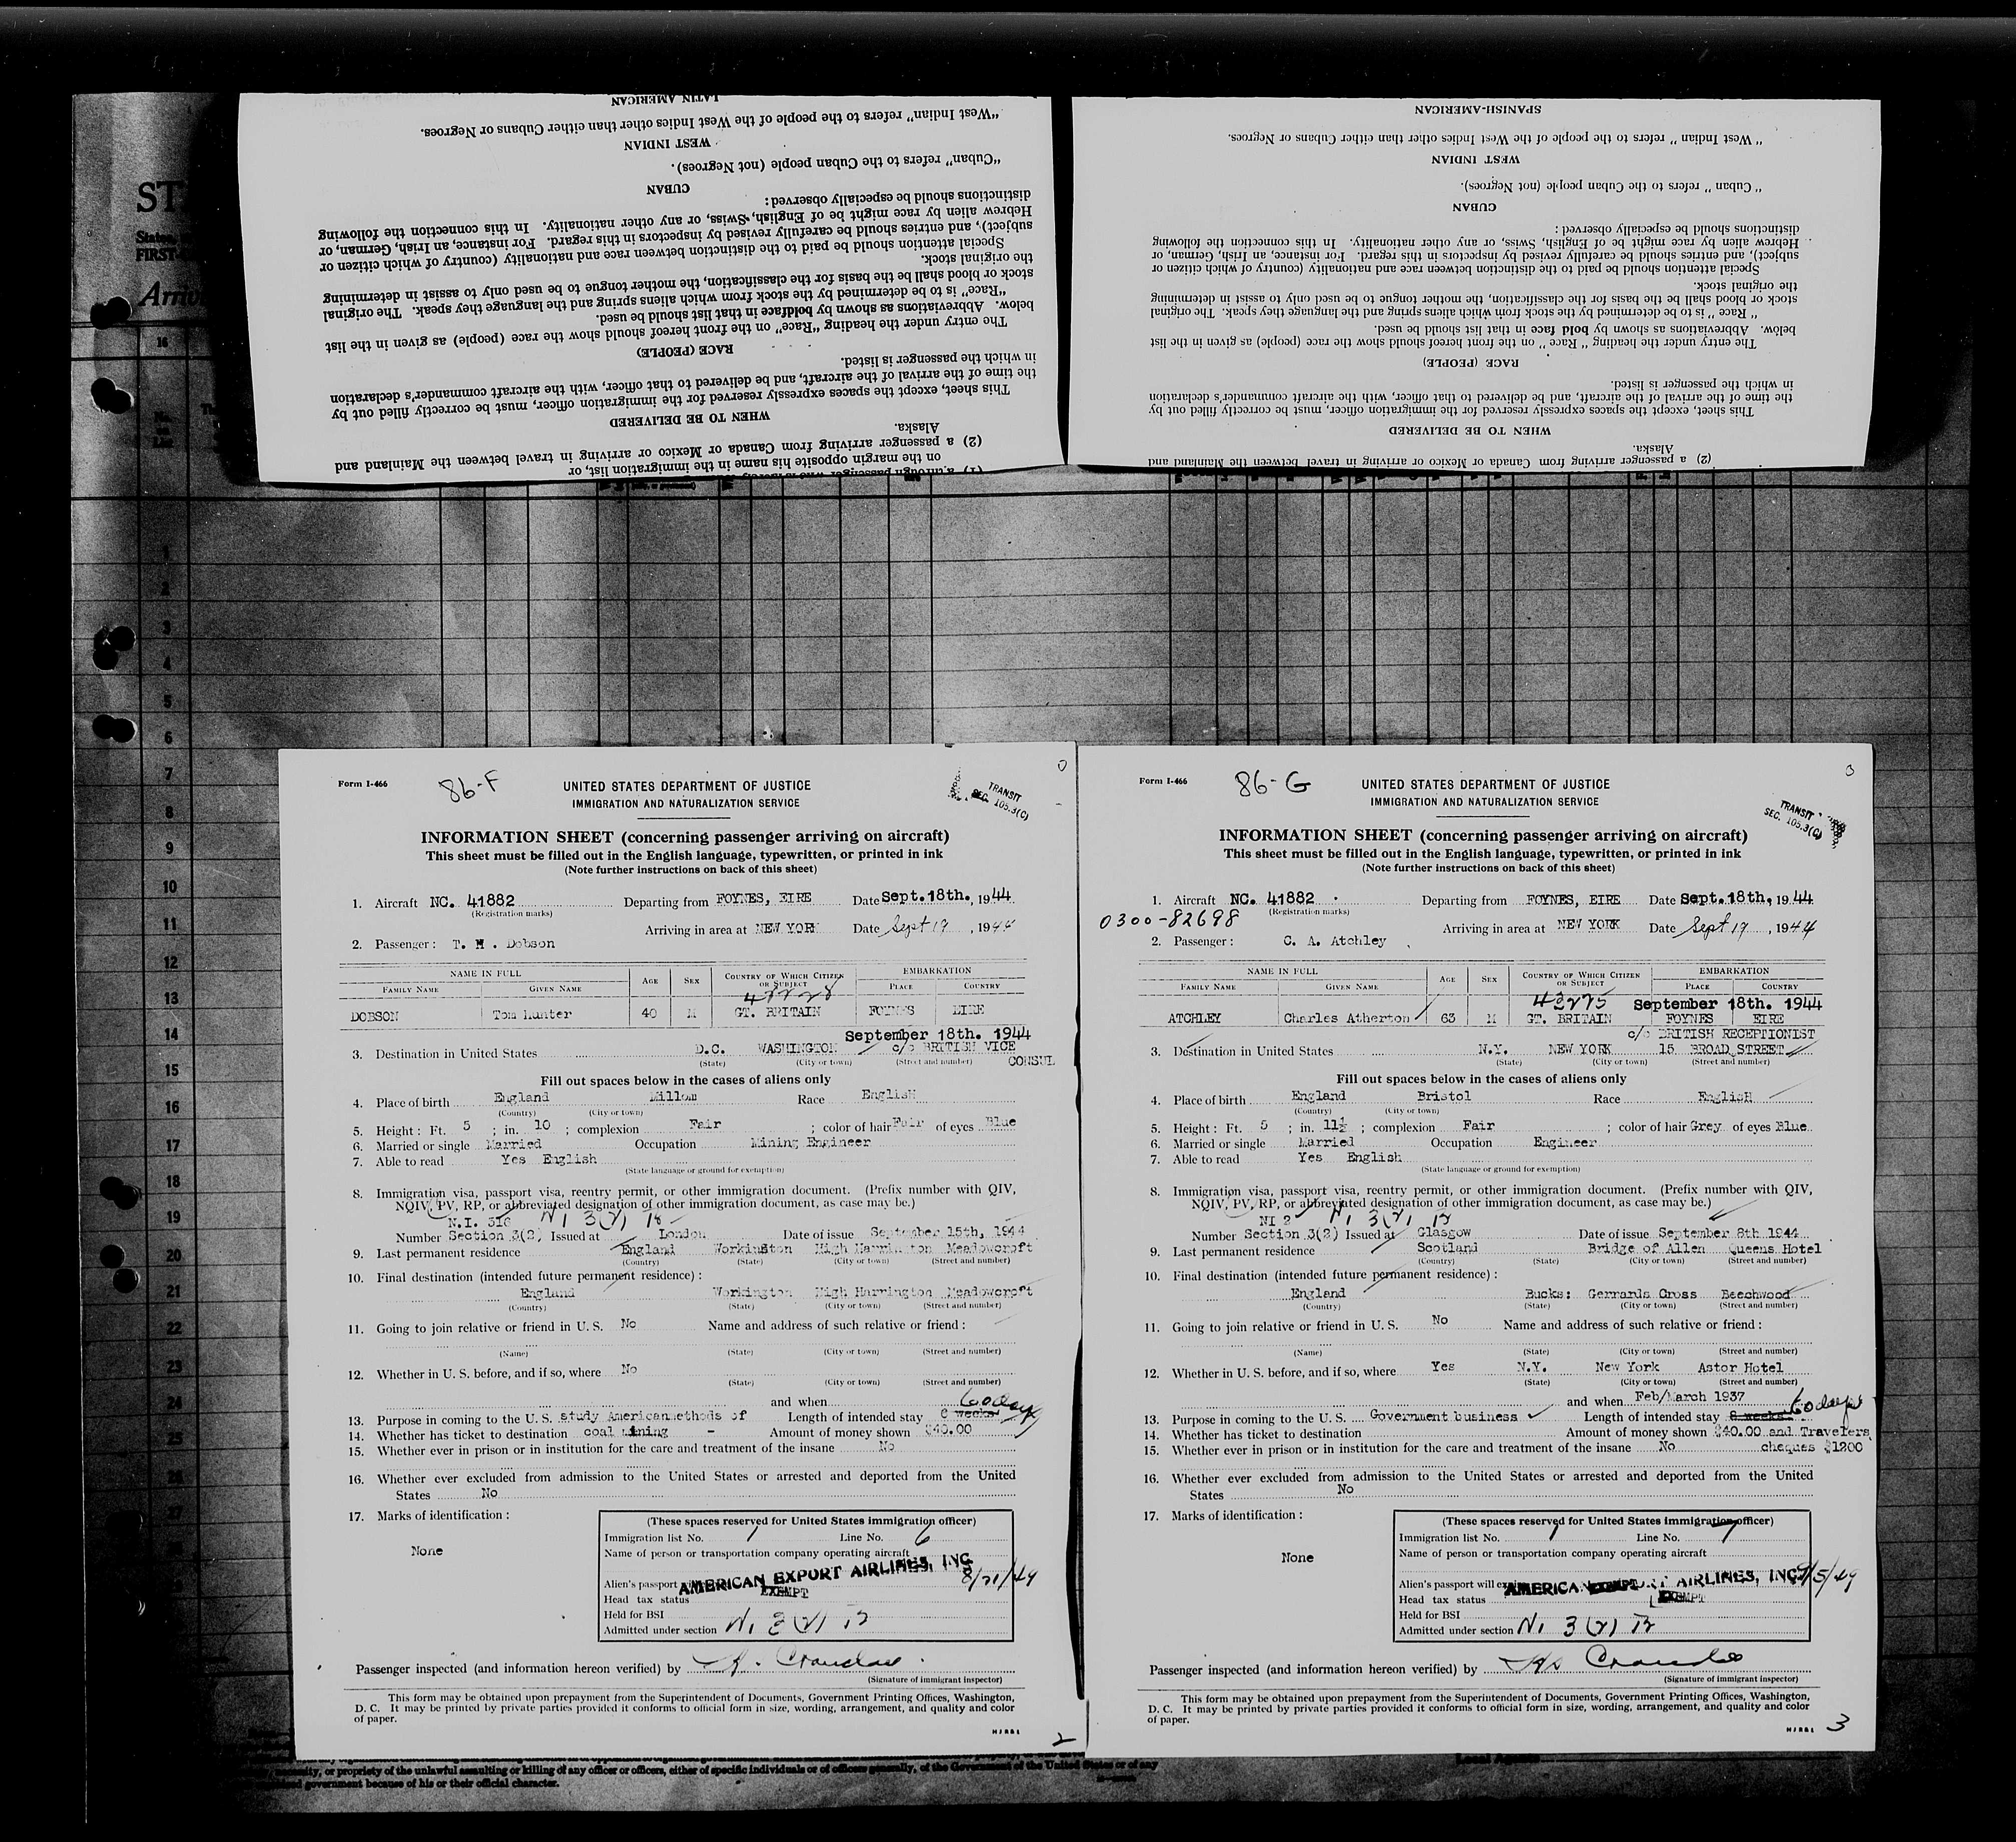 LATIN AMERICAN
"West Indian" refers to the people of the West Indies other than either Cubans or Negroes.
WEST INDIAN
"Cuban" refers to the Cuban people (not Negroes).
CUBAN
distinctions should be especially observed:
Hebrew alien by race might be of English, Swiss, or any other nationality. In this connection the following
subject), and entries should be carefully revised by inspectors in this regard. For instance, an Irish, German, or
Special attention should be paid to the distinction between race and nationality (country of which citizen or
the original stock.
stock or blood shall be the basis for the classification, the mother tongue to be used only to assist in determining
"Race" is to be determined by the stock from which aliens spring and the language they speak. The original
below. Abbreviations as shown by boldface in that list should be used.
The entry under the heading "Race" on the front hereof should show the race (people) as given in the list
RACE (PEOPLE)
in which the passenger is listed.
the time of the arrival of the aircraft, and be delivered to that officer, with the aircraft commander's declaration
This sheet, except the spaces expressly reserved for the immigration officer, must be correctly filled out by
WHEN TO BE DELIVERED
Alaska.
(2) a passenger arriving from Canada or Mexico or arriving in travel between the Mainland and
on the margin opposite his name in the immigration list, or
SPANISH-AMERICAN
"West Indian" refers to the people of the West Indies other than either Cubans or Negroes.
WEST INDIAN
"Cuban" refers to the Cuban people (not Negroes).
CUBAN
distinctions should be especially observed:
Hebrew alien by race might be of English, Swiss, or any other nationality. In this connection the following
subject), and entries should be carefully revised by inspectors in this regard. For instance, an Irish, German, or
Special attention should be paid to the distinction between race and nationality (country of which citizen or
the original stock.
stock or blood shall be the basis for the classification, the mother tongue to be used only to assist in determining
"Race" is to be determined by the stock from which aliens spring and the language they speak. The original
below. Abbreviations as shown by bold face in that list should be used.
The entry under the heading "Race" on the front hereof should show the race (people) as given in the list
RACE (PEOPLE)
in which the passenger is listed.
the time of the arrival of the aircraft, and be delivered to that officer, with the aircraft commander's declaration
This sheet, except the spaces expressly reserved for the immigration officer, must be correctly filled out by
WHEN TO BE DELIVERED
Alaska.
(2) a passenger arriving from Canada or Mexico or arriving in travel between the Mainland and
16
1
2
3
4
5
6
7
8
9
10
11
12
13
14
15
16
17
18
19
20
21
22
23
24
25
26
27
Form I-466
86-F
UNITED STATES DEPARTMENT OF JUSTICE
IMMIGRATION AND NATURALIZATION SERVICE
TRANSIT
SEC. 105.3(C)
INFORMATION SHEET (concerning passenger arriving on aircraft)
This sheet must be filled out in the English language, typewritten, or printed in ink
(Note further instructions on back of this sheet)
1. Aircraft NC. 41882 Departing from FOYNES, EIRE Date Sept.18th., 1944
(Registration marks)
Arriving in area at NEW YORK Date Sept 19, 1944
2. Passenger: T. H. Dobson
NAME IN FULL AGE SEX COUNTRY OF WHICH CITIZEN OR SUBJECT EMBARKATION
FAMILY NAME GIVEN NAME PLACE COUNTRY
DOBSON Tom Hunter 40 M GT. BRITAIN FOYNES EIRE
September 18th. 1944
3. Destination in United States D.C. WASHINGTON c/o BRITISH VICE CONSUL
(State) (City or town) (Street and number)
Fill out spaces below in the cases of aliens only
4. Place of birth England Millom Race English
(Country) (City or town)
5. Height: Ft. 5; in. 10; complexion Fair; color of hair Fair of eyes Blue
6. Married or single Married Occupation Mining Engineer
7. Able to read Yes English
(State language or ground for exemption)
8. Immigration visa, passport visa, reentry permit, or other immigration document. (Prefix number with QIV,
NQIV, PV, RP, or abbreviated designation of other immigration document, as case may be.)
N.I. 316
Number Section 3(2) Issued at London Date of issue September 15th, 1944
9. Last permanent residence England Workington High Harrington Meadowcroft
(Country) (State) (City or town) (Street and number)
10. Final destination (intended future permanent residence):
England Workington High Harrington Meadowcroft
(Country) (State) (City or town) (Street and number)
11. Going to join relative or friend in U. S. No Name and address of such relative or friend:
(Name) (State) (City or town) (Street and number)
12. Whether in U. S. before, and if so, where No
(State) (City or town) (Street and number)
and when 60 days
13. Purpose in coming to the U. S. study American methods of Length of intended stay weeks
14. Whether has ticket to destination coal mining - Amount of money shown $40.00
15. Whether ever in prison or in institution for the care and treatment of the insane No
16. Whether ever excluded from admission to the United States or arrested and deported from the United
States No
17. Marks of identification:
None
(These spaces reserved for United States immigration officer)
Immigration list No. 1 Line No. 6
Name of person or transportation company operating aircraft
AMERICAN EXPORT AIRLINES, INC.
Alien's passport 8/21/49
Head tax status EXEMPT
Held for BSI
Admitted under section NI 3(2) B
Passenger inspected (and information hereon verified) by
(Signature of immigrant inspector)
This form may be obtained upon prepayment from the Superintendent of Documents, Government Printing Offices, Washington,
D. C. It may be printed by private parties provided it conforms to official form in size, wording, arrangement, and quality and color
of paper.
2
Form I-466
86-G
UNITED STATES DEPARTMENT OF JUSTICE
IMMIGRATION AND NATURALIZATION SERVICE
3
TRANSIT
SEC. 105.3(C)
INFORMATION SHEET (concerning passenger arriving on aircraft)
This sheet must be filled out in the English language, typewritten, or printed in ink
(Note further instructions on back of this sheet)
1. Aircraft NC. 41882 Departing from FOYNES, EIRE Date Sept.18th, 1944
0300-82698 (Registration marks)
Arriving in area at NEW YORK Date Sept 19, 1944
2. Passenger: C. A. Atchley
NAME IN FULL AGE SEX COUNTRY OF WHICH CITIZEN OR SUBJECT EMBARKATION
FAMILY NAME GIVEN NAME PLACE COUNTRY
43275 September 18th. 1944
ATCHLEY Charles Atherton 63 M GT. BRITAIN FOYNES EIRE
c/o BRITISH RECEPTIONIST
3. Destination in United States N.Y. NEW YORK 15 BROAD STREET
(State) (City or town) (Street and number)
Fill out spaces below in the cases of aliens only
4. Place of birth England Bristol Race English
(Country) (City or town)
5. Height: Ft. 5; in. 11½; complexion Fair; color of hair Grey of eyes Blue
6. Married or single Married Occupation Engineer
7. Able to read Yes English
(State language or ground for exemption)
8. Immigration visa, passport visa, reentry permit, or other immigration document. (Prefix number with QIV,
NQIV, PV, RP, or abbreviated designation of other immigration document, as case may be.)
NI 2
Number Section 3(2) Issued at Glasgow Date of issue September 8th 1944
9. Last permanent residence Scotland Bridge of Allen Queens Hotel
(Country) (State) (City or town) (Street and number)
10. Final destination (intended future permanent residence):
England Bucks: Gerrards Cross Beechwood
(Country) (State) (City or town) (Street and number)
11. Going to join relative or friend in U. S. No Name and address of such relative or friend:
(Name) (State) (City or town) (Street and number)
12. Whether in U. S. before, and if so, where Yes N.Y. New York Astor Hotel
(State) (City or town) (Street and number)
and when Feb/March 1937 60 days
13. Purpose in coming to the U. S. Government business Length of intended stay 8 weeks
14. Whether has ticket to destination Amount of money shown $40.00 and Travelers
15. Whether ever in prison or in institution for the care and treatment of the insane No cheques $1200
16. Whether ever excluded from admission to the United States or arrested and deported from the United
States No
17. Marks of identification:
None
(These spaces reserved for United States immigration officer)
Immigration list No. 1 Line No. 7
Name of person or transportation company operating aircraft
AMERICAN EXPORT AIRLINES, INC.
Alien's passport will
Head tax status EXEMPT
Held for BSI
Admitted under section NI 3(2) B
Passenger inspected (and information hereon verified) by
(Signature of immigrant inspector)
This form may be obtained upon prepayment from the Superintendent of Documents, Government Printing Offices, Washington,
D. C. It may be printed by private parties provided it conforms to official form in size, wording, arrangement, and quality and color
of paper.
3
or propriety of the unlawful assaulting or killing of any officer or officers, either of specific individuals or of officers generally, of the Government of the United States or of any
government because of his or their official character.